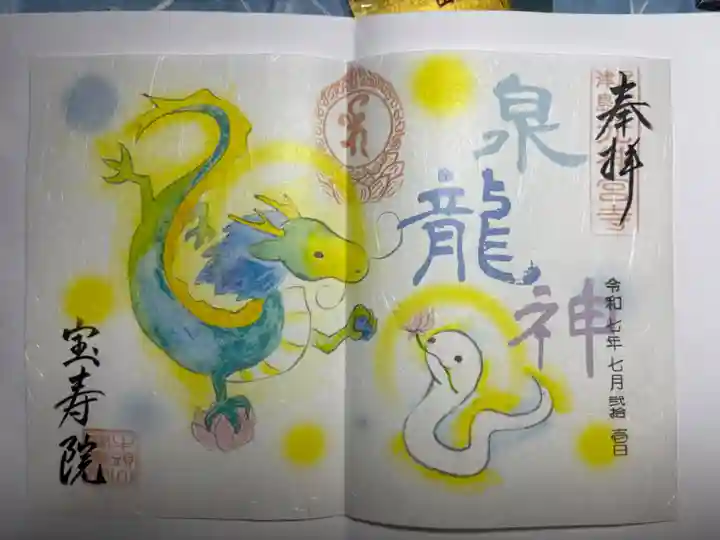 奉拝
泉
龍
神
令和七年七月弐拾壱日
宝寿院